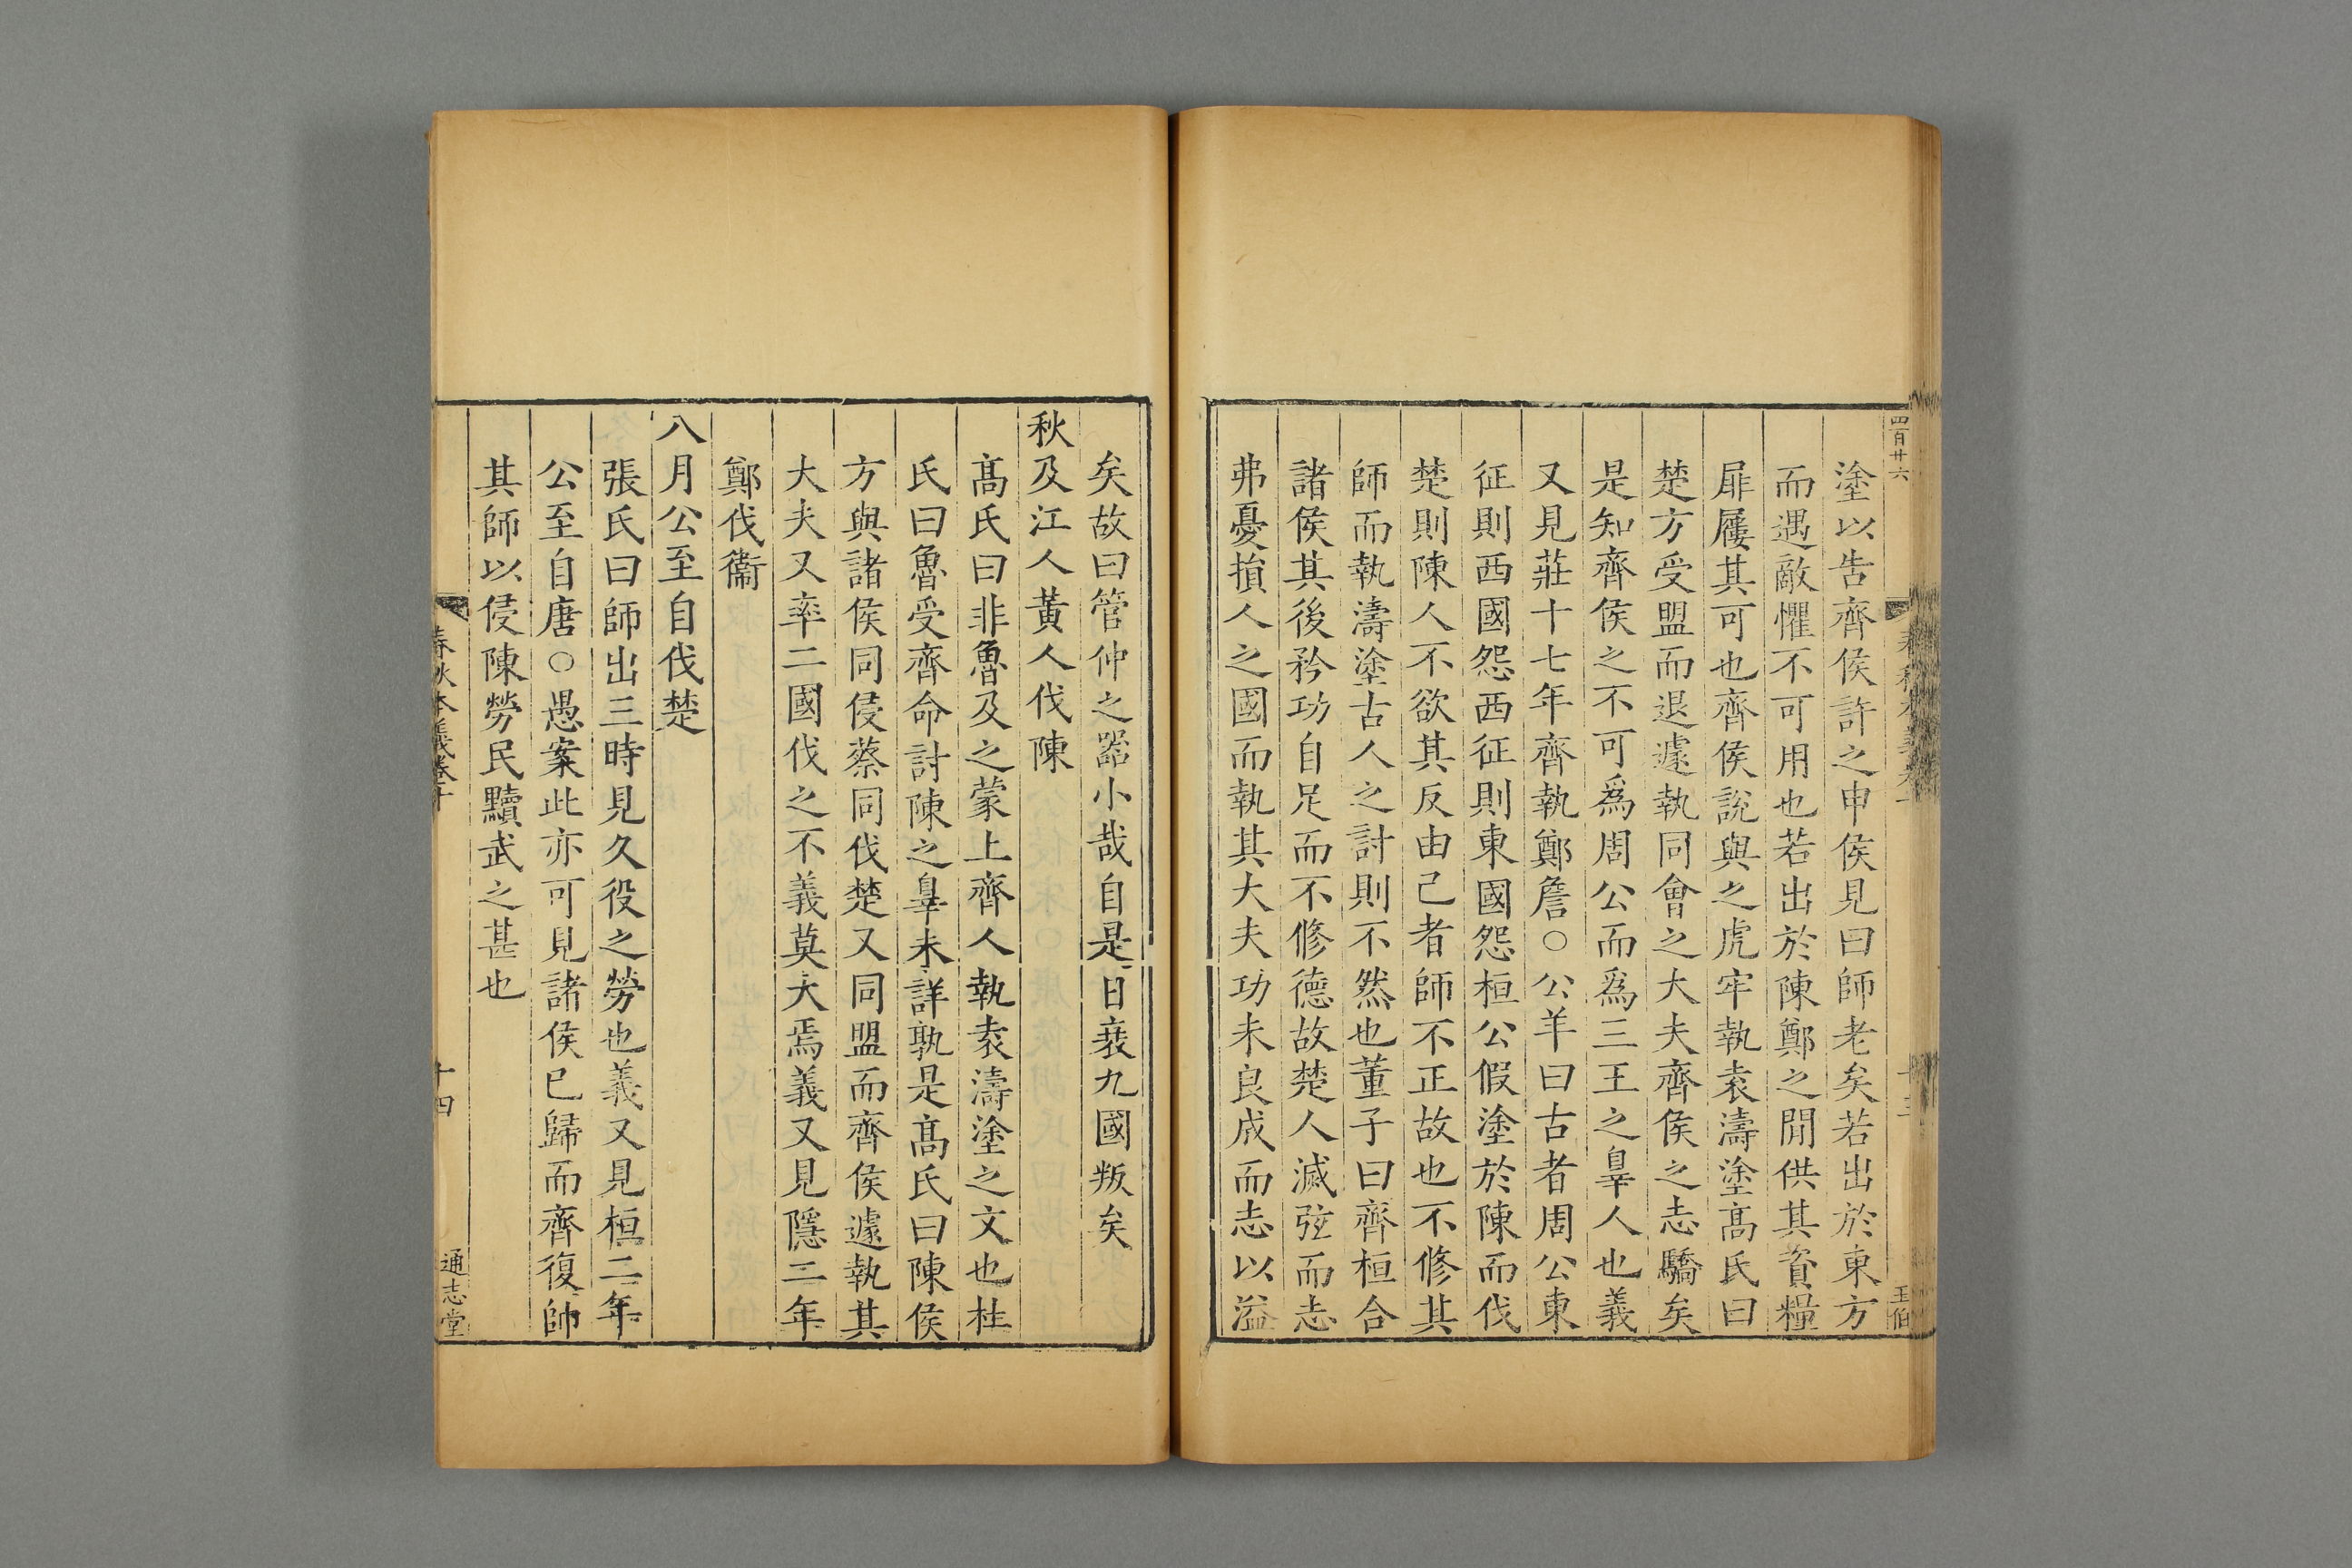 四百廿六
王伯
塗以告齊侯許之申侯見曰師老矣若出於東方
而遇敵懼不可用也若出於陳鄭之閒供其資糧
屝屨其可也齊侯說與之虎牢執袁濤塗髙氏曰
楚方受盟而退遽執同會之大夫齊侯之志驕矣
是知齊侯之不可爲周公而爲三王之辠人也義
又見莊十七年齊執鄭詹○公羊曰古者周公東
征則西國怨西征則東國怨桓公假塗於陳而伐
楚則陳人不欲其反由己者師不正故也不修其
師而執濤塗古人之討則不然也董子曰齊桓合
諸侯其後矜功自足而不修德故楚人滅弦而志
弗憂損人之國而執其大夫功未良成而志以溢
矣故曰管仲之器小哉自是日衰九國叛矣
秋及江人黃人伐陳
髙氏曰非魯及之蒙上齊人執袁濤塗之文也杜
氏曰魯受齊命討陳之辠未詳孰是髙氏曰陳侯
方與諸侯同侵蔡同伐楚又同盟而齊侯遽執其
大夫又率二國伐之不義莫大焉義又見隱二年
鄭伐衞
八月公至自伐楚
張氏曰師出三時見久役之勞也義又見桓二年
公至自唐○愚案此亦可見諸侯已歸而齊復帥
其師以侵陳勞民黷武之甚也
春秋本義卷十
十四
通志堂